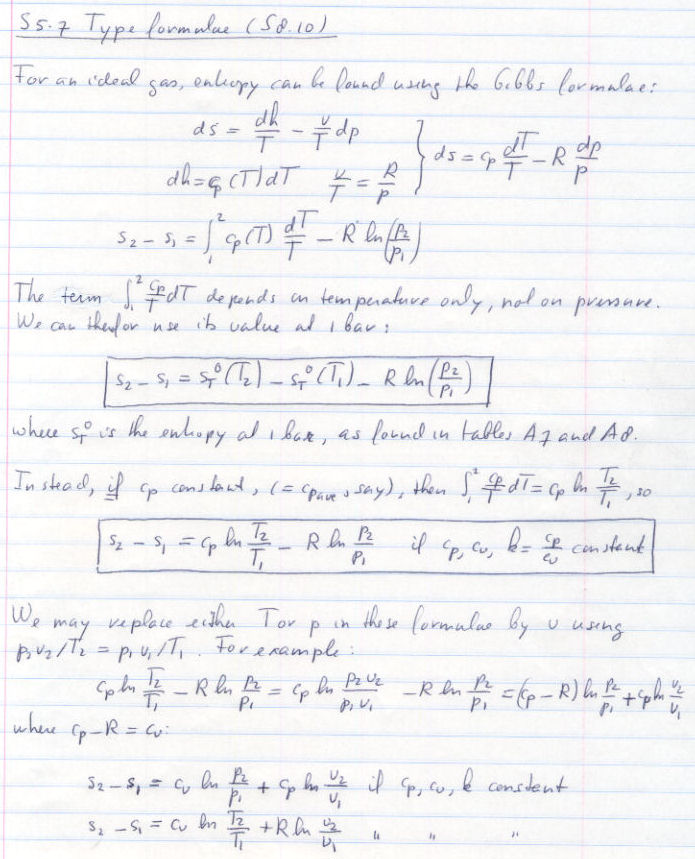 S5.7 Type formulae (S8.10)
For an ideal gas, entropy can be found using the Gibbs formulae:
ds = dh/T - v/T dp
dh = cp(T)dT   v/T = R/p   } ds = cp dT/T - R dp/p
s2 - s1 = ∫₁² cp(T) dT/T - R ln(p2/p1)
The term ∫₁² cp/T dT depends on temperature only, not on pressure.
We can therfor use its value at 1 bar:
s2 - s1 = sT°(T2) - sT°(T1) - R ln(p2/p1)
where sT° is the entropy at 1 bar, as found in tables A7 and A8.
Instead, if cp constant, (= cpave, say), then ∫₁² cp/T dT = cp ln T2/T1, so
s2 - s1 = cp ln T2/T1 - R ln p2/p1   if cp, cv, k = cp/cv constant
We may replace either T or p in these formulae by v using
p2v2/T2 = p1v1/T1. For example:
cp ln T2/T1 - R ln p2/p1 = cp ln p2v2/p1v1 - R ln p2/p1 = (cp - R) ln p2/p1 + cp ln v2/v1
where cp - R = cv:
s2 - s1 = cv ln p2/p1 + cp ln v2/v1 if cp, cv, k constant
s2 - s1 = cv ln T2/T1 + R ln v2/v1   "   "   "